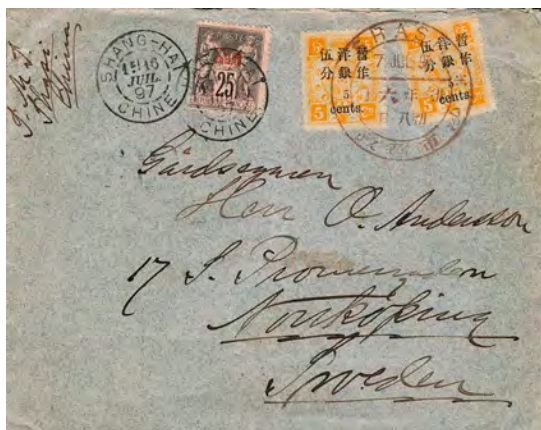 SHANG-HAI
16
JUIL.
97
CHINE
25
CHINE
暫作
洋銀
伍分
5
cents.
5
暫作
洋銀
伍分
5
cents.
5
Shgai
China
Herr O. Andersson
17 S. Promenaden
Norrköping
Sweden